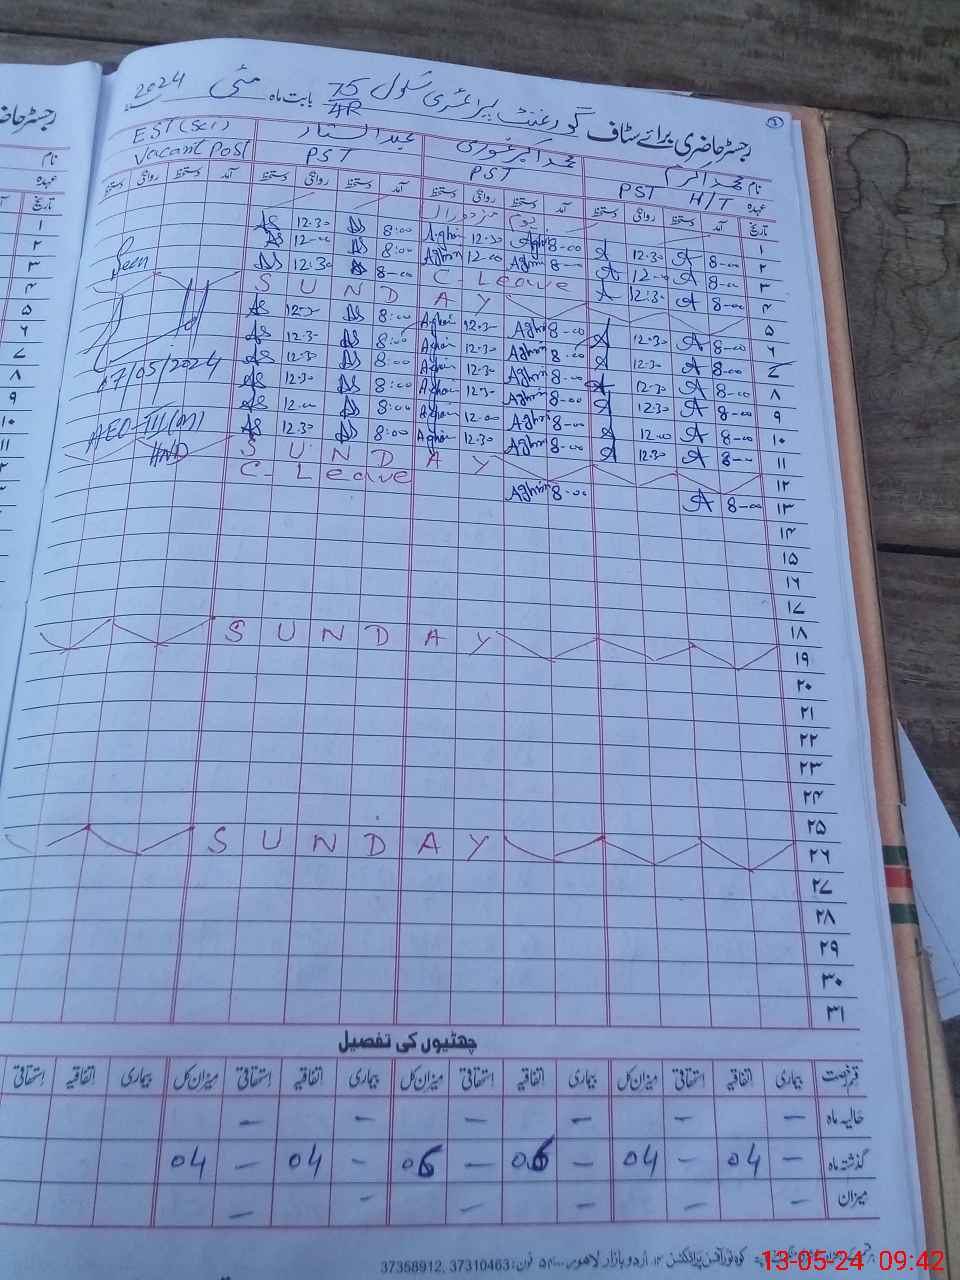 رجسٹر حاضری برائے سٹاف گورنمنٹ پرائمری سکول 75/4R بابت ماہ مئی 2024
نام محمد اکرم محمد اکبر غوری عبدالستار EST (Sci)
عہدہ PST H/T PST PST Vacant Post
تاریخ آمد دستخط روانگی دستخط آمد دستخط روانگی دستخط آمد دستخط روانگی دستخط آمد دستخط روانگی دستخط
۱ یوم مزدوراں
۲ 8-00 A 12.30 A 8-00 Aghori 12.30 Aghori 8:00 AS 12.30 AS
۳ 8-00 A 12-00 A 8-00 Aghori 12.00 Aghori 8:00 AS 12-00 AS
۴ 8-00 A 12:30 A C-Leave 8-00 AS 12.30 AS
۵ S U N D A Y
۶ 8-00 A 12.30 A 8-00 Aghori 12.30 Aghori 8:00 AS 12.30 AS
۷ 8-00 A 12.30 A 8-00 Aghori 12.30 Aghori 8:00 AS 12.30 AS
۸ 8-00 A 12.30 A 8-00 Aghori 12.30 Aghori 8:00 AS 12.30 AS
۹ 8-00 A 12.30 A 8-00 Aghori 12.30 Aghori 8:00 AS 12.30 AS
۱۰ 8-00 A 12.00 A 8-00 Aghori 12.00 Aghori 8:00 AS 12.00 AS
۱۱ 8-00 A 12.30 A 8-00 Aghori 12.30 Aghori 8:00 AS 12.30 AS
۱۲ S U N D A Y
۱۳ 8-00 A 8-00 Aghori C-Leave
Seen
07/05/2024
AEO-III(M)
HND
۱۴
۱۵
۱۶
۱۷
۱۸
۱۹ S U N D A Y
۲۰
۲۱
۲۲
۲۳
۲۴
۲۵
۲۶ S U N D A Y
۲۷
۲۸
۲۹
۳۰
۳۱
چھٹیوں کی تفصیل
قسم رخصت بیماری اتفاقیہ استحقاقی میزان کل بیماری اتفاقیہ استحقاقی میزان کل بیماری اتفاقیہ استحقاقی میزان کل بیماری اتفاقیہ استحقاقی
حالیہ ماہ – – – – – –
گذشتہ ماہ – 04 – 04 – 06 – 06 – 04 – 04
میزان – – – – – –
اردو بازار لاہور۔ فون: 37310463, 37358912
13-05-24 09:42